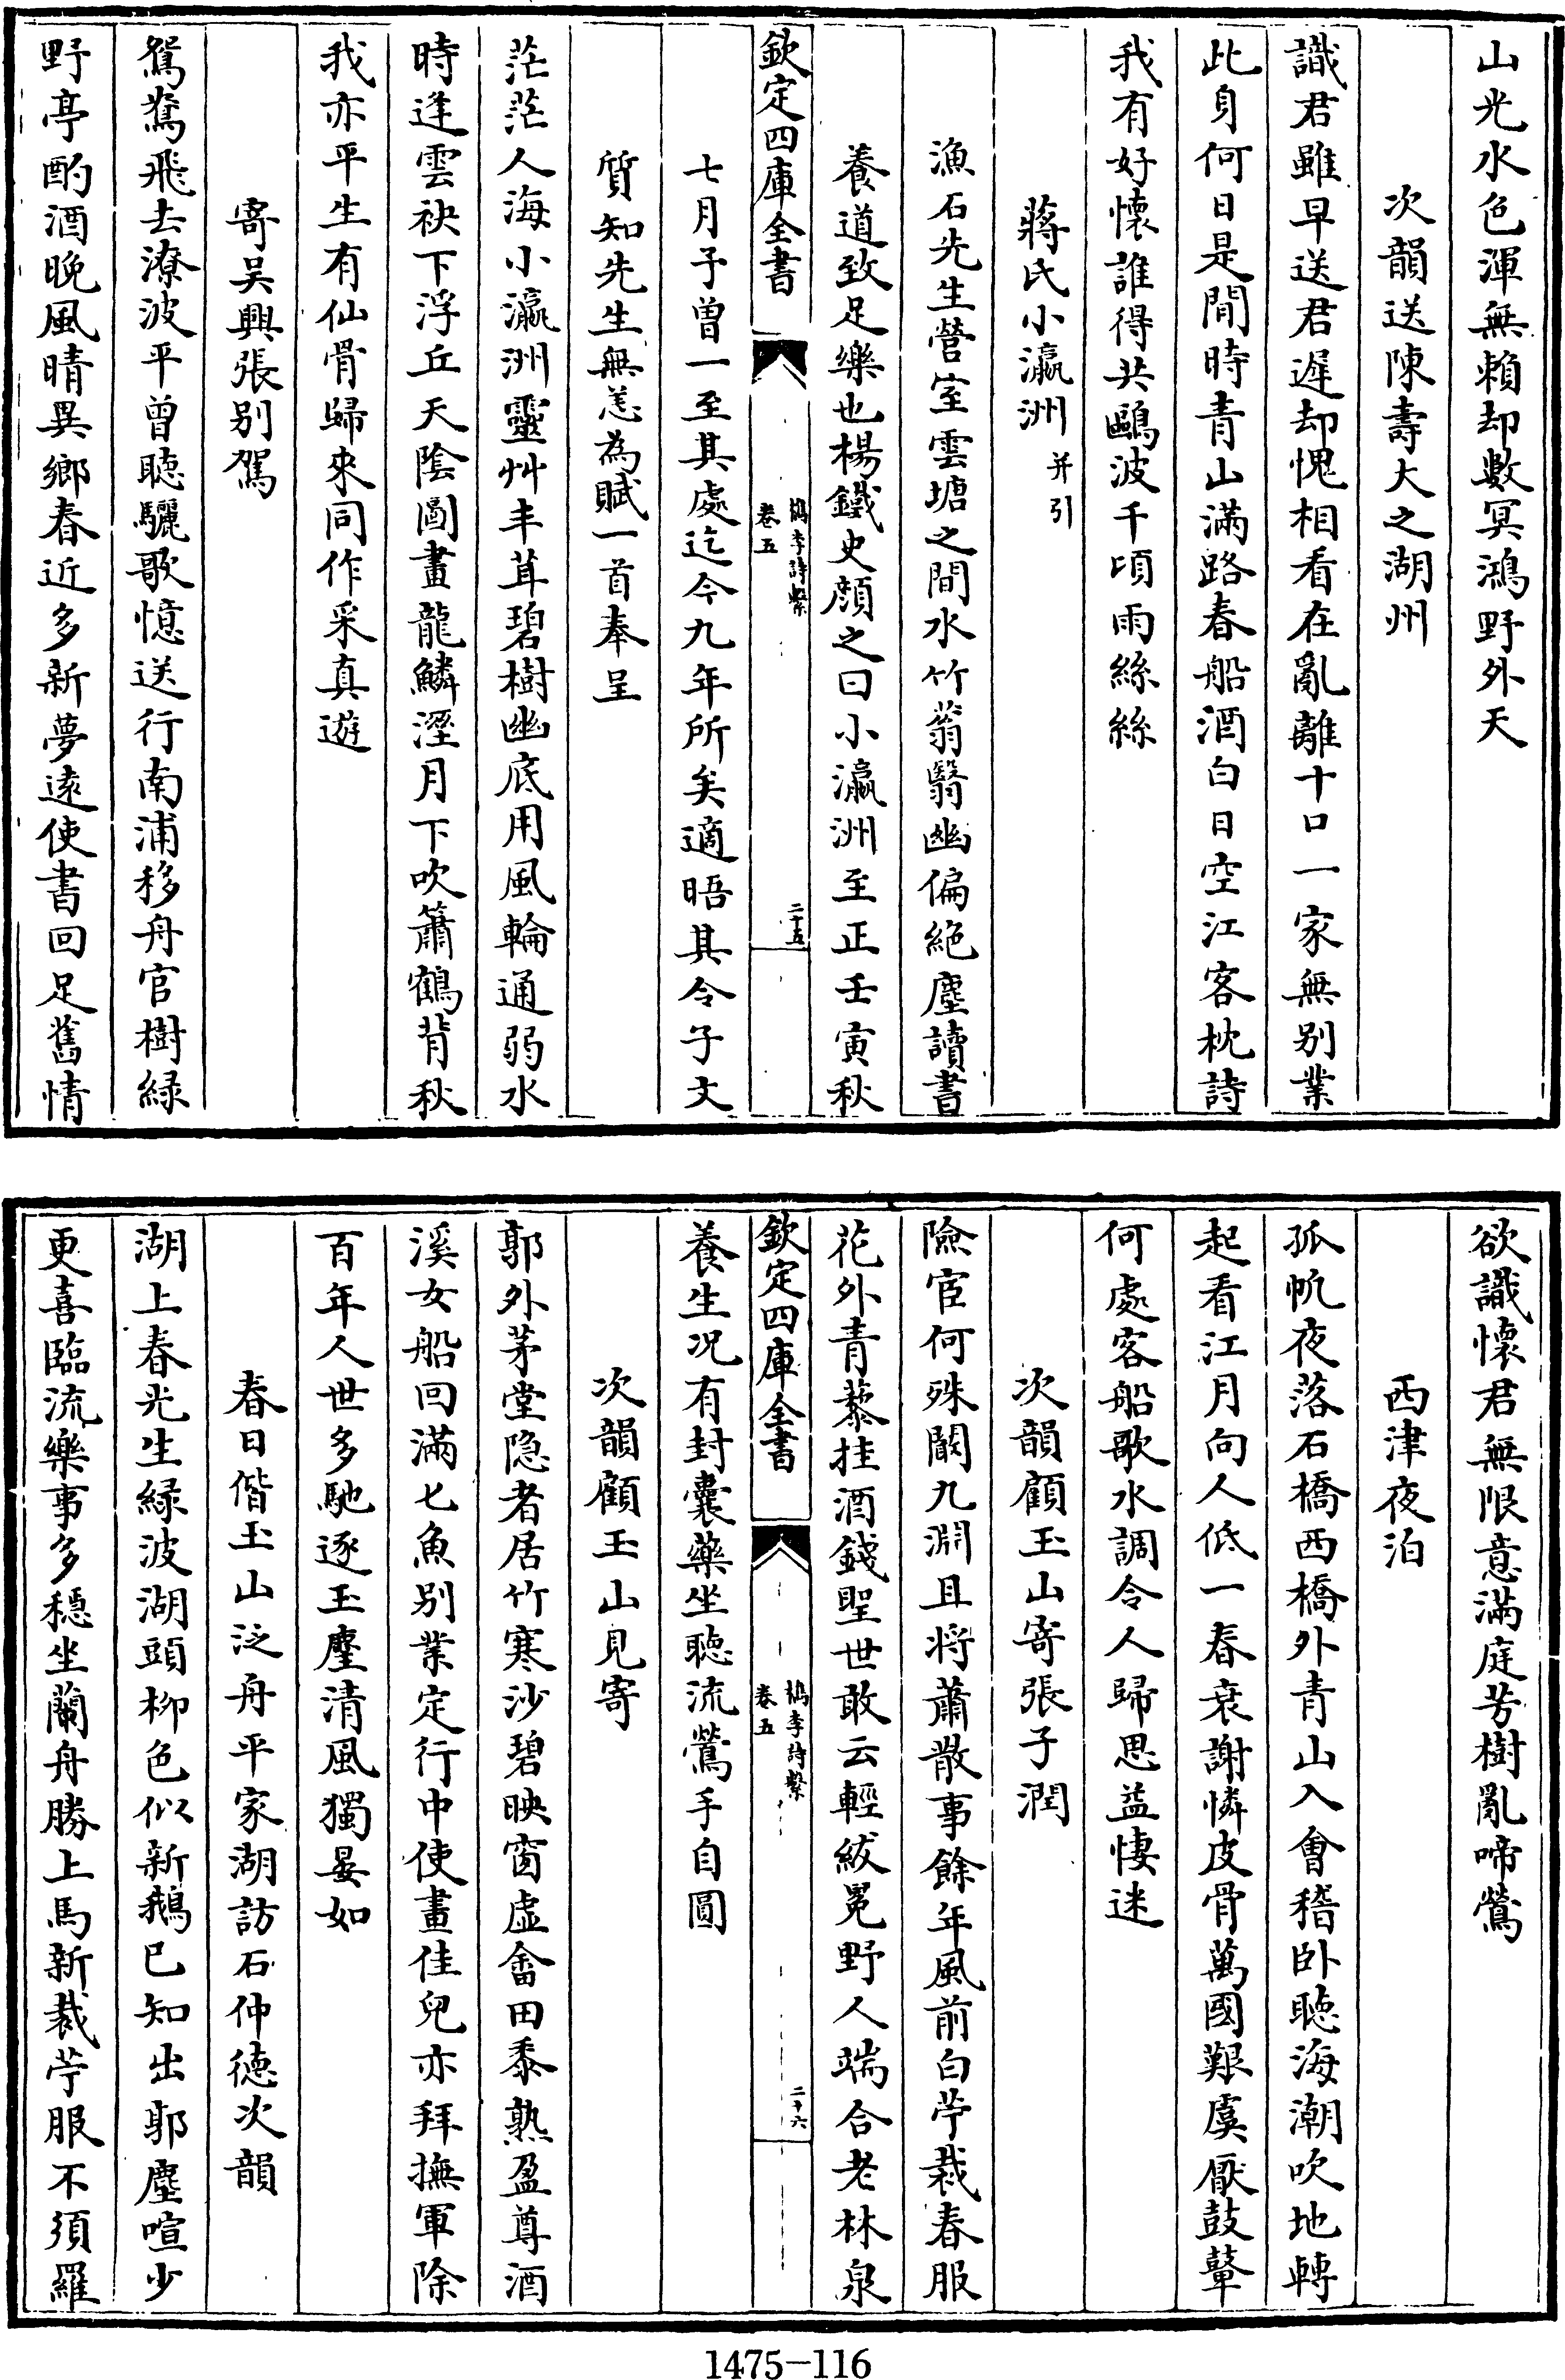 山光水色渾無賴却數冥鴻野外天
次韻送陳壽大之湖州
識君雖早送君遲却愧相看在亂離十口一家無别業
此身何日是閒時青山滿路春船酒白日空江客枕詩
我有好懷誰得共鷗波千頃雨絲絲
蔣氏小瀛洲并引
漁石先生營室雲塘之間水竹蓊翳幽偏絶塵讀書
養道致足樂也楊鐵史顔之曰小瀛洲至正壬寅秋
欽定四庫全書
檇李詩繫
卷五
二十五
七月予曽一至其處迄今九年所矣適晤其令子文
質知先生無恙為賦一首奉呈
茫茫人海小瀛洲靈艸丰茸碧樹幽底用風輪通弱水
時逢雲袂下浮丘天陰圖畫龍鱗溼月下吹簫鶴背秋
我亦平生有仙骨歸來同作采真遊
寄吴興張别駕
鴛鴦飛去潦波平曾聴驪歌憶送行南浦移舟官樹緑
野亭酌酒晚風晴異鄉春近多新夢逺使書回足舊情
欲識懷君無限意滿庭芳樹亂啼鶯
西津夜泊
孤帆夜落石橋西橋外青山入會稽卧聴海潮吹地轉
起看江月向人低一春衰謝憐皮骨萬國艱虞厭鼓鼙
何處客船歌水調令人歸思益悽迷
次韻顧玉山寄張子潤
險宦何殊闞九淵且将蕭散事餘年風前白苧裁春服
花外青藜挂酒錢聖世敢云輕紱冕野人端合老林泉
欽定四庫全書
檇李詩繫
卷五
二十六
養生况有封囊藥坐聴流鶯手自圓
次韻顧玉山見寄
郭外茅堂隐者居竹寒沙碧映窗虚畬田黍熟盈尊酒
溪女船回滿七魚别業定行中使畫佳兒亦拜撫軍除
百年人世多馳逐玉麈清風獨晏如
春日偕玉山泛舟平家湖訪石仲徳次韻
湖上春光生緑波湖頭柳色似新鵝已知出郭塵喧少
更喜臨流樂事多穩坐蘭舟勝上馬新裁苧服不須羅
1475-116